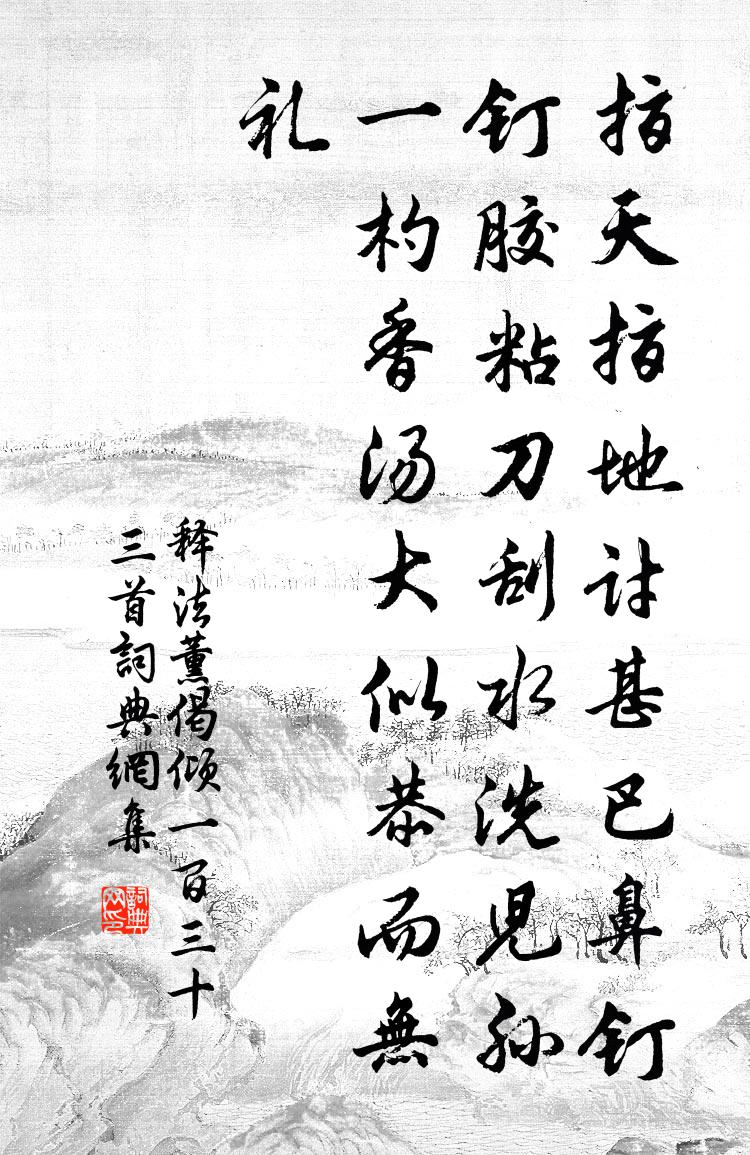 指天指地讨甚巴鼻钉
钉胶粘刀刮水洗児孙
一杓香汤大似恭而無
礼
释法薰偈倾一百三十
三首詞典網集
詞典